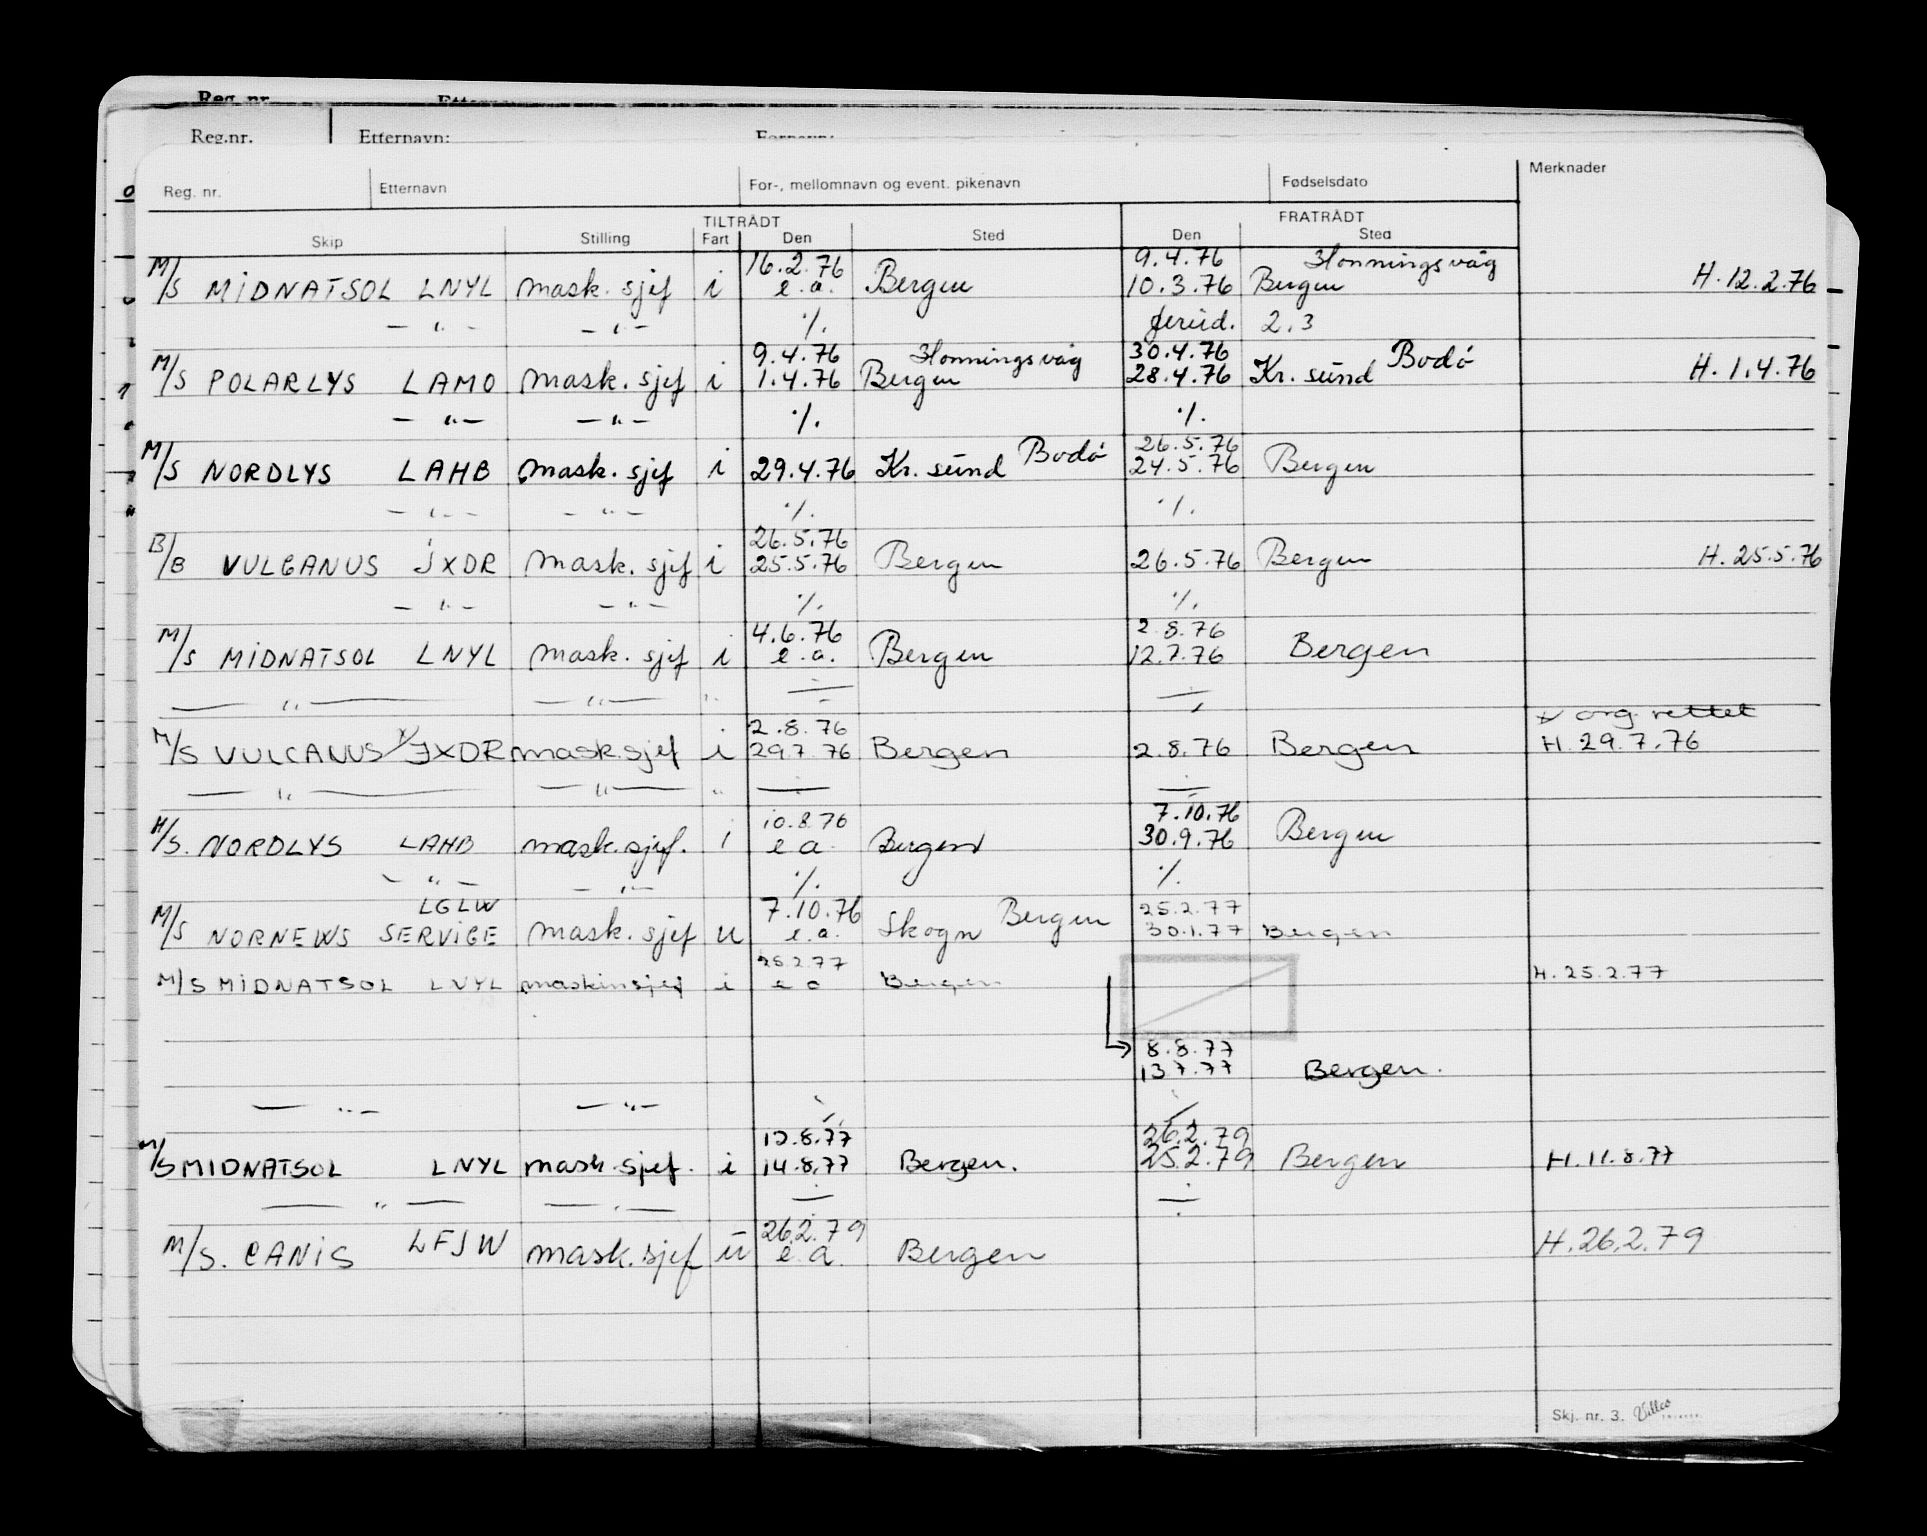 Reg. nr.
Reg.nr. Etternavn: Fornavn:
Reg. nr. Etternavn For-, mellomnavn og event. pikenavn Fødselsdato Merknader
TILTRÅDT FRATRÅDT
Skip Stilling Fart Den Sted Den Sted
16.2.76 9.4.76 Honningsvåg
M/S MIDNATSOL LNYL mask. sjef i e.a. Bergen 10.3.76 Bergen H. 12.2.76
— " — — " — ./. 2.3
9.4.76 Honningsvåg 30.4.76 Bodø
M/S POLARLYS LAMO mask. sjef i 1.4.76 Bergen 28.4.76 Kr. sund H. 1.4.76
— " — — " — ./. ./.
Bodø 26.5.76
M/S NORDLYS LAHB mask. sjef i 29.4.76 Kr. sund 24.5.76 Bergen
— " — — " — ./. ./.
26.5.76
B/B VULCANUS JXDR mask. sjef i 25.5.76 Bergen 26.5.76 Bergen H. 25.5.76
— " — — " — ./. ./.
4.6.76 2.8.76
M/S MIDNATSOL LNYL mask. sjef i e.a. Bergen 12.7.76 Bergen
— " — — " — " ÷ ÷
2.8.76 x org. rettet
M/S VULCANUS x/ JXDR mask.sjef i 29.7.76 Bergen 2.8.76 Bergen H. 29.7.76
— " — — " — " ÷ ÷
10.8.76 7.10.76
M/S. NORDLYS LAHB mask.sjef. i e.a. Bergen 30.9.76 Bergen
— " — — " — ./. ./.
LGLW 7.10.76 Bergen 25.2.77
M/S NORNEWS SERVICE mask. sjef u e.a. Skogn 30.1.77 Bergen
25.2.77
M/S MIDNATSOL LNYL maskinsjef i e a Bergen H. 25.2.77
8.8.77
13 7.77 Bergen.
— " — — " — ./. ./.
12.8.77 26.2.79
M/S MIDNATSOL LNYL mask.sjef. i 14.8.77 Bergen. 25.2.79 Bergen H.11.8.77
— " — — " — ÷ ÷
26.2.79
M/S. CANIS LFJW mask.sjef u e.a. Bergen H.26.2.79
Skj. nr. 3.